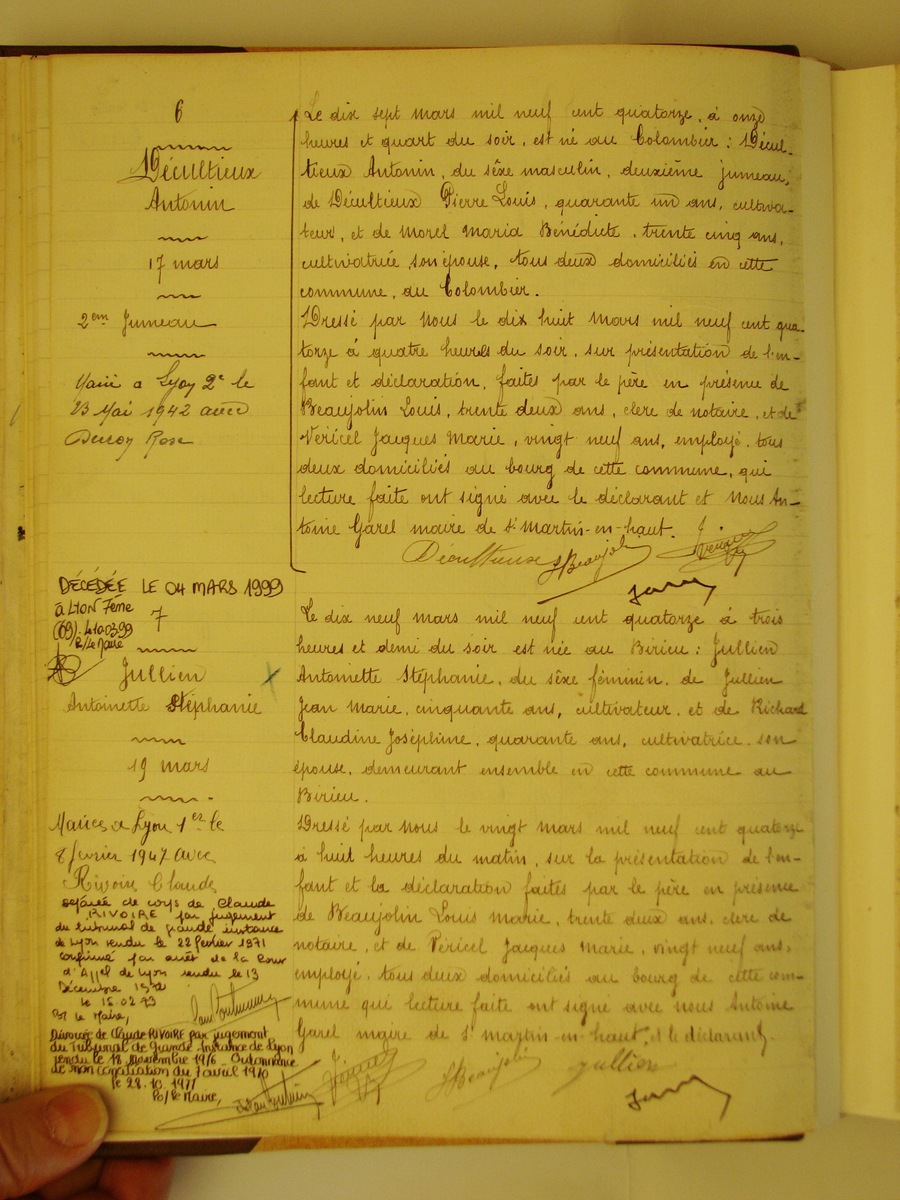 6
Décultieux
Antonin
17 mars
2em Jumeau
Marié a Lyon 2e le
23 Mai 1942 avec
Rose
Le dix sept mars mil neuf cent quatorze, à onze
heures et quart du soir, est né au Colombier : Décul-
tieux Antonin, du sèxe masculin, deuxième jumeau,
de Décultieux Pierre Louis, quarante un ans, cultiva-
teur, et de Morel Maria Bénédicte, trente cinq ans,
cultivatrice, son épouse, tous deux domiciliés en cette
commune, au Colombier.
Dressé par Nous le dix huit Mars mil neuf cent qua-
torze à quatre heures du soir, sur présentation de l'en-
fant et déclaration, faites par le père en présence de
Beaujolin Louis, trente deux ans, clerc de notaire, et de
Véricel Jacques Marie, vingt neuf ans, employé, tous
deux domiciliés au bourg de cette commune, qui
lecture faite ont signé avec le déclarant et Nous An-
toine Garel maire de St Martin-en-haut.
Décultieux LBeaujolin JVericel
DÉCÉDÉE LE 04 MARS 1999
à LYON 7ème
(69). le 10.03.99
P/Le Maire
7
Jullien
Antoinette Stéphanie
19 mars
Mariée a Lyon 1er le
8 février 1947 avec
Rivoire Claude
séparée de corps de Claude
RIVOIRE par jugement
du tribunal de grande instance
de Lyon rendu le 22 février 1971
confirmé par arrêt de la Cour
d'Appel de Lyon rendu le 13
Décembre 1972
le 15.02.73
Pr le Maire,
Divorcée de Claude RIVOIRE par jugement
du Tribunal de Grande Instance de Lyon
rendu le 18 novembre 1976. Ordonnance
de non conciliation du 7 avril 1970
le 28.10.1977
Po/le Maire,
Le dix neuf mars mil neuf cent quatorze à trois
heures et demi du soir est née au Birieu : Jullien
Antoinette Stéphanie, du sèxe féminin, de Jullien
Jean Marie, cinquante ans, cultivateur, et de Richard
Claudine Joséphine, quarante ans, cultivatrice, son
épouse, demeurant ensemble en cette commune au
Birieu.
Dressé par Nous le vingt mars mil neuf cent quatorze
à huit heures du matin, sur la présentation de l'en-
fant et la déclaration faites par le père en présence
de Beaujolin Louis Marie, trente deux ans, clerc de
notaire, et de Véricel Jacques Marie, vingt neuf ans,
employé, tous deux domiciliés au bourg de cette com-
mune qui lecture faite ont signé avec nous Antoine
Garel maire de St martin-en-haut, et le déclarant.
JVericel LBeaujolin Jullien